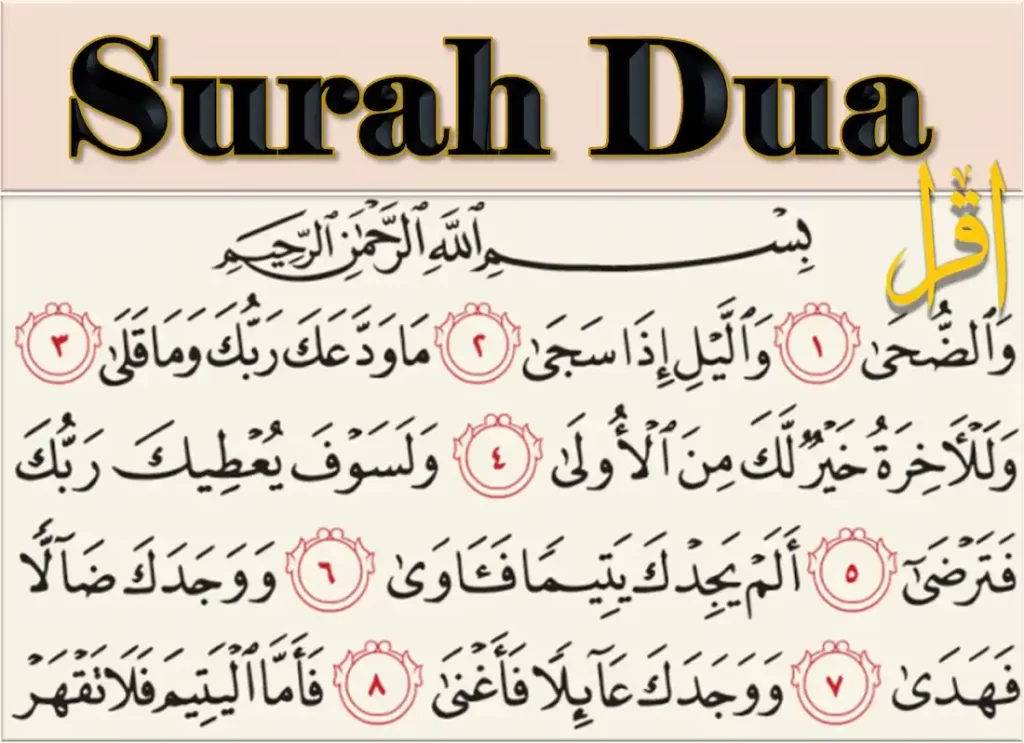 Surah Dua
اقرأ
بِسْمِ ٱللَّهِ ٱلرَّحْمَٰنِ ٱلرَّحِيمِ
وَٱلضُّحَىٰ ١ وَٱلَّيْلِ إِذَا سَجَىٰ ٢ مَا وَدَّعَكَ رَبُّكَ وَمَا قَلَىٰ ٣
وَلَلْأَخِرَةُ خَيْرٌ لَّكَ مِنَ ٱلْأُولَىٰ ٤ وَلَسَوْفَ يُعْطِيكَ رَبُّكَ
فَتَرْضَىٰٓ ٥ أَلَمْ يَجِدْكَ يَتِيمًا فَـَٔاوَىٰ ٦ وَوَجَدَكَ ضَآلًّا
فَهَدَىٰ ٧ وَوَجَدَكَ عَآئِلًا فَأَغْنَىٰ ٨ فَأَمَّا ٱلْيَتِيمَ فَلَا تَقْهَرْ